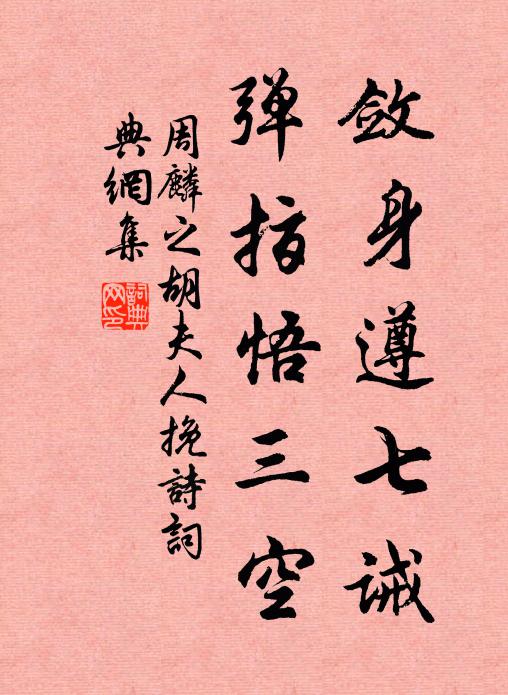 敛身遵七诫
弹指悟三空
周麟之胡夫人挽詩詞
典網集
詞典网印